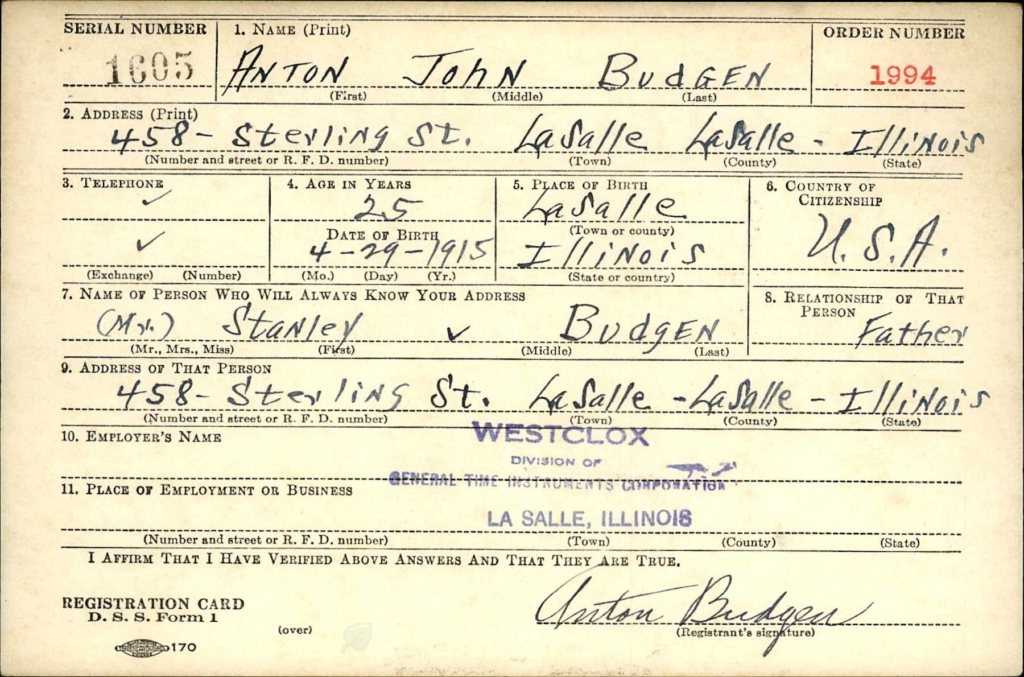 SERIAL NUMBER 1. NAME (Print) ORDER NUMBER
1605 ANTON JOHN BUDGEN 1994
(First) (Middle) (Last)
2. ADDRESS (Print)
458- Sterling St. LaSalle LaSalle - Illinois
(Number and street or R. F. D. number) (Town) (County) (State)
3. TELEPHONE 4. AGE IN YEARS 5. PLACE OF BIRTH 6. COUNTRY OF CITIZENSHIP
✓ 25 LaSalle
DATE OF BIRTH (Town or county) U.S.A.
✓ 4-29-1915 Illinois
(Exchange) (Number) (Mo.) (Day) (Yr.) (State or country)
7. NAME OF PERSON WHO WILL ALWAYS KNOW YOUR ADDRESS 8. RELATIONSHIP OF THAT PERSON
(Mr.) Stanley ✓ BUDGEN Father
(Mr., Mrs., Miss) (First) (Middle) (Last)
9. ADDRESS OF THAT PERSON
458- Sterling St. LaSalle -LaSalle - Illinois
(Number and street or R. F. D. number) (Town) (County) (State)
10. EMPLOYER'S NAME WESTCLOX
DIVISION OF
GENERAL TIME INSTRUMENTS CORPORATION
11. PLACE OF EMPLOYMENT OR BUSINESS
LA SALLE, ILLINOIS
(Number and street or R. F. D. number) (Town) (County) (State)
I AFFIRM THAT I HAVE VERIFIED ABOVE ANSWERS AND THAT THEY ARE TRUE.
REGISTRATION CARD
D. S. S. Form 1 Anton Budgen
(over) (Registrant's signature)
170